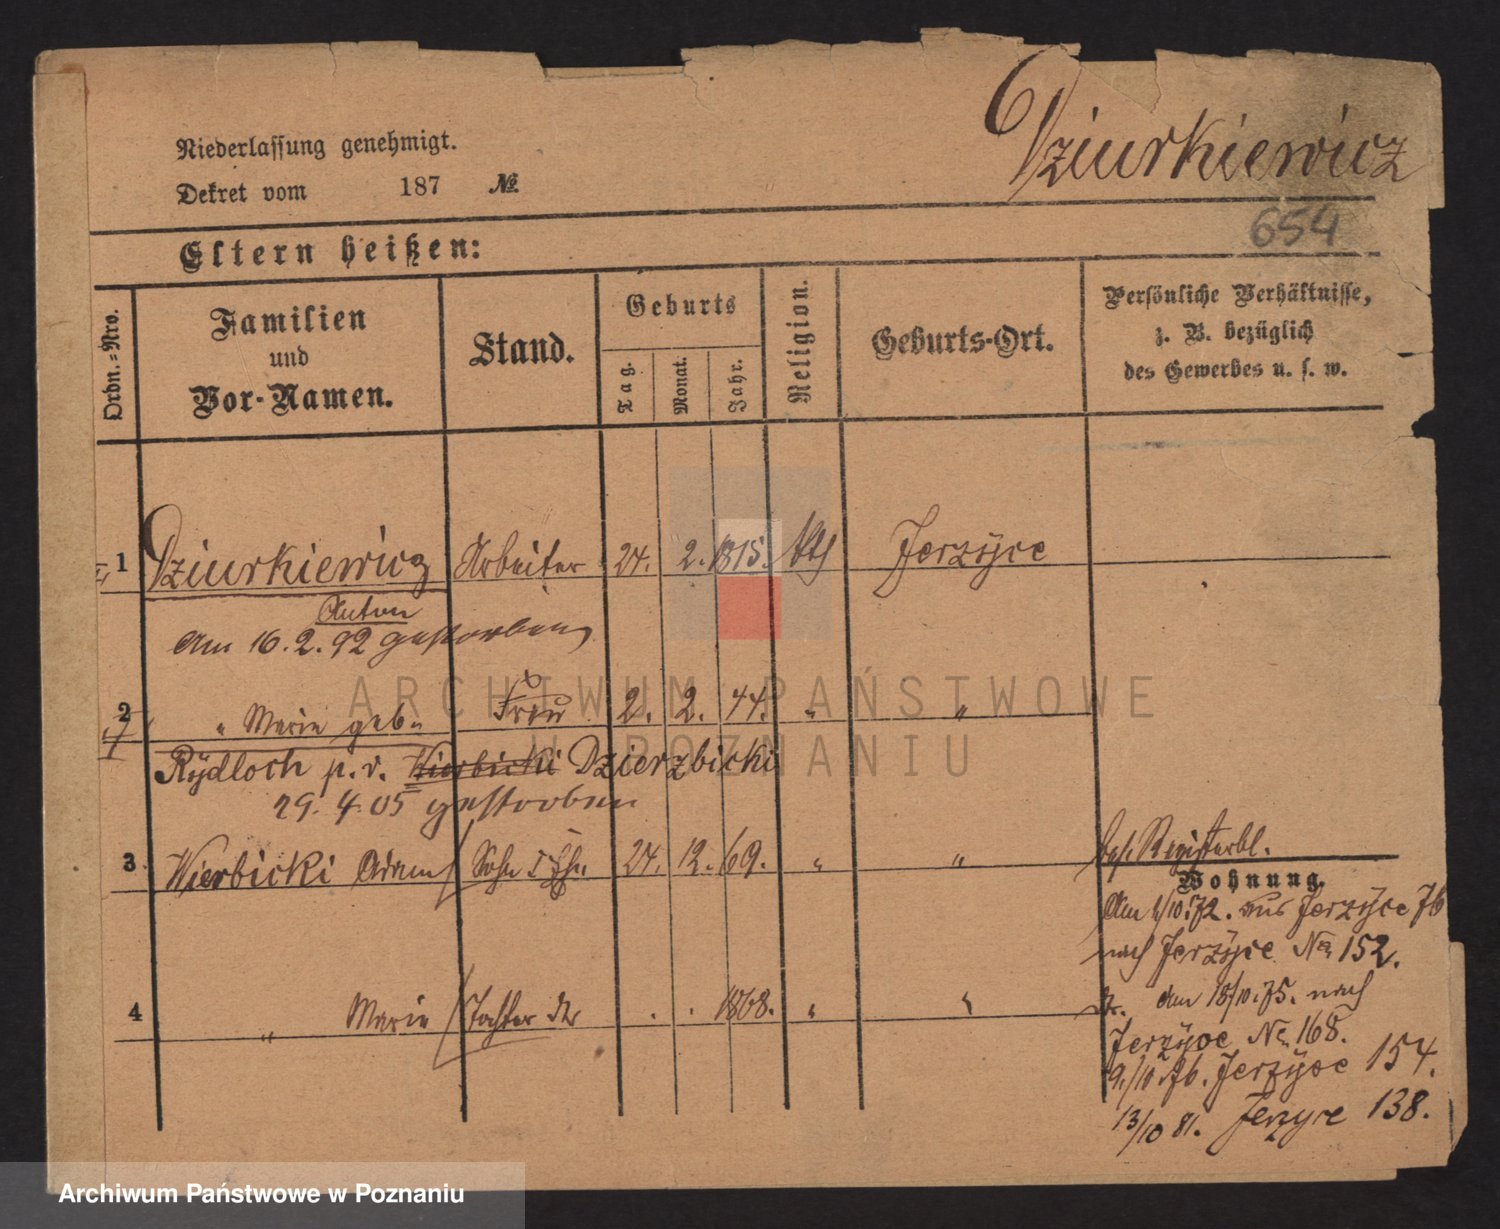 Dziurkiewicz
Niederlassung genehmigt.
Dekret vom 187 №
654
Eltern heißen:
Ordn.=Nro.
Familien
und
Vor-Namen.
Stand.
Geburts
Tag.
Monat.
Jahr.
Religion.
Geburts-Ort.
Persönliche Verhältnisse,
z. B. bezüglich
des Gewerbes u. s. w.
1 Dziurkiewicz Arbeiter 24. 2. 1815. Jerzyce
Anton
am 16.2.92 gestorben
2 " Marie geb. Frau 2. 2. 44. " "
Rÿdloch p. v. Wierbicki Dzierzbicki
29.4.05 gestorben
3. Wierbicki Adam Sohn 24. 12. 69. " "
4 " Marie Tochter 1868. " "
Registerbl.
Wohnung.
Am 1/10.72. aus Jerzÿce 76
nach Jerzÿce No 152.
am 18/10.75. nach
Jerzÿce No 168.
9./10.76. Jerzÿce 154.
13/10 81. Jerzyce 138.
ARCHIWUM PAŃSTWOWE
W POZNANIU
Archiwum Państwowe w Poznaniu